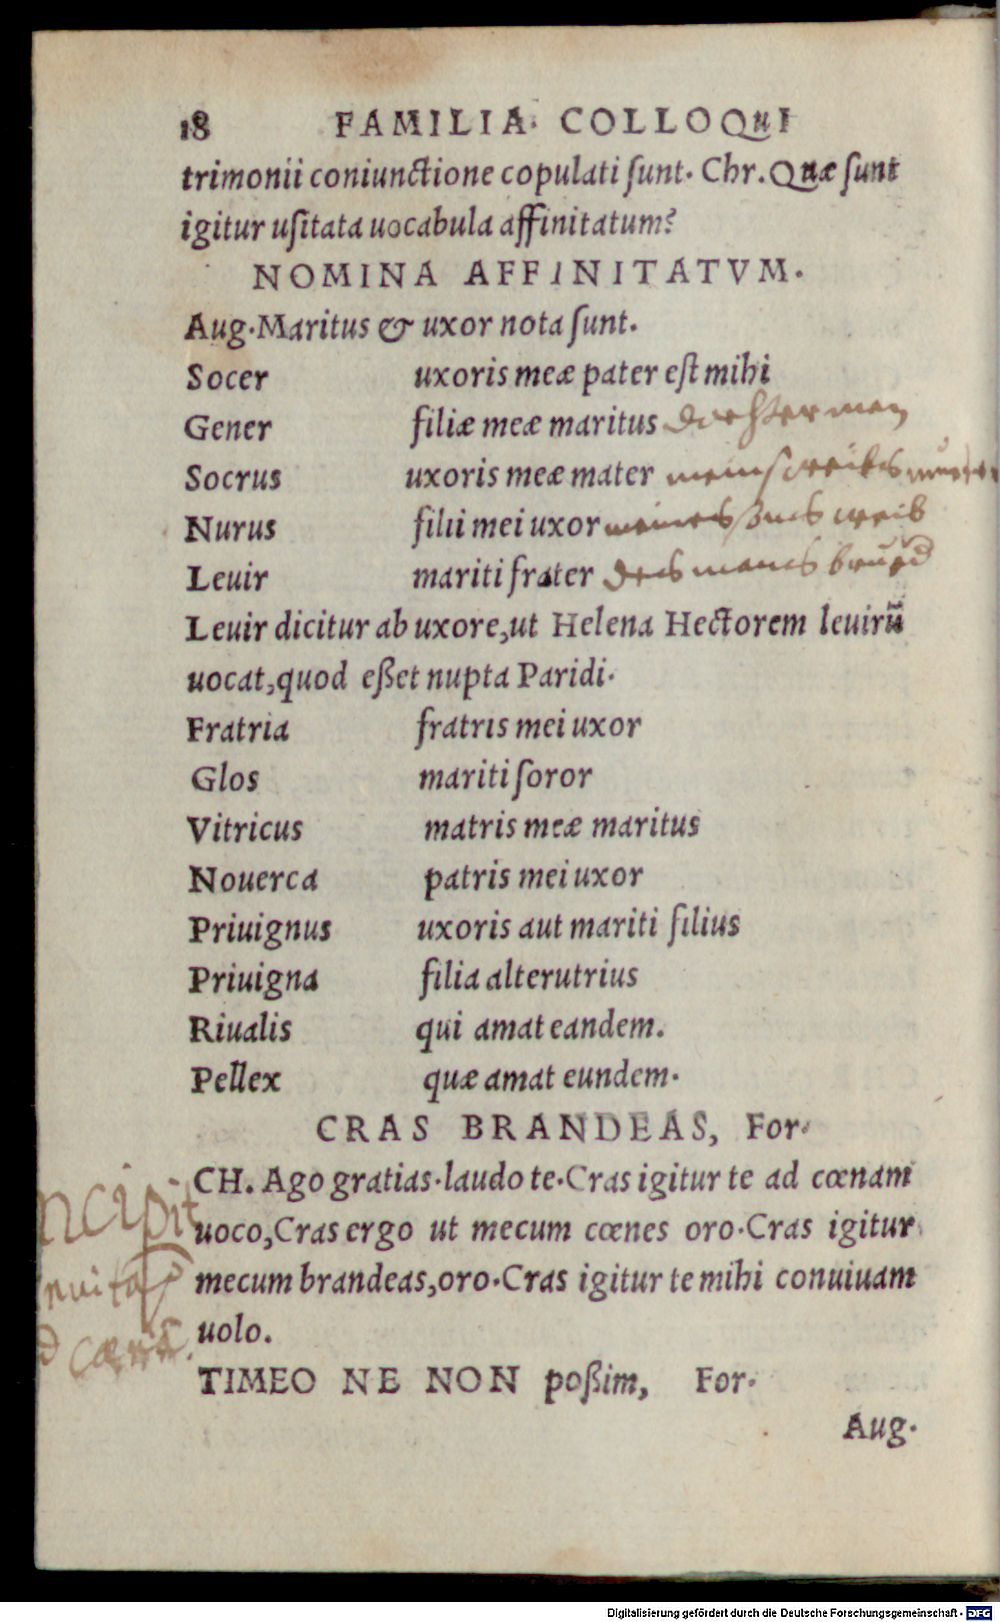 18 FAMILIA. COLLOQuI
trimonii coniunctione copulati ſunt. Chr. Quæ ſunt
igitur uſitata uocabula affinitatum?
NOMINA AFFINITATVM.
Aug. Maritus & uxor nota ſunt.
Socer uxoris meæ pater eſt mihi
Gener filiæ meæ maritus dochterman
Socrus uxoris meæ mater meins weibs
Nurus filii mei uxor meines ſuns weib
Leuir mariti frater des mans brud
Leuir dicitur ab uxore, ut Helena Hectorem leuirũ
uocat, quod eßet nupta Paridi.
Fratria fratris mei uxor
Glos mariti ſoror
Vitricus matris meæ maritus
Nouerca patris mei uxor
Priuignus uxoris aut mariti filius
Priuigna filia alterutrius
Riualis qui amat eandem.
Pellex quæ amat eundem.
CRAS BRANDEAS, For.
CH. Ago gratias. laudo te. Cras igitur te ad cœnam
ncipit
uoco, Cras ergo ut mecum cœnes oro. Cras igitur
mecum brandeas, oro. Cras igitur te mihi conuiuam
uolo.
TIMEO NE NON poßim, For.
Aug.
Digitalisierung gefördert durch die Deutsche Forschungsgemeinschaft - DFG